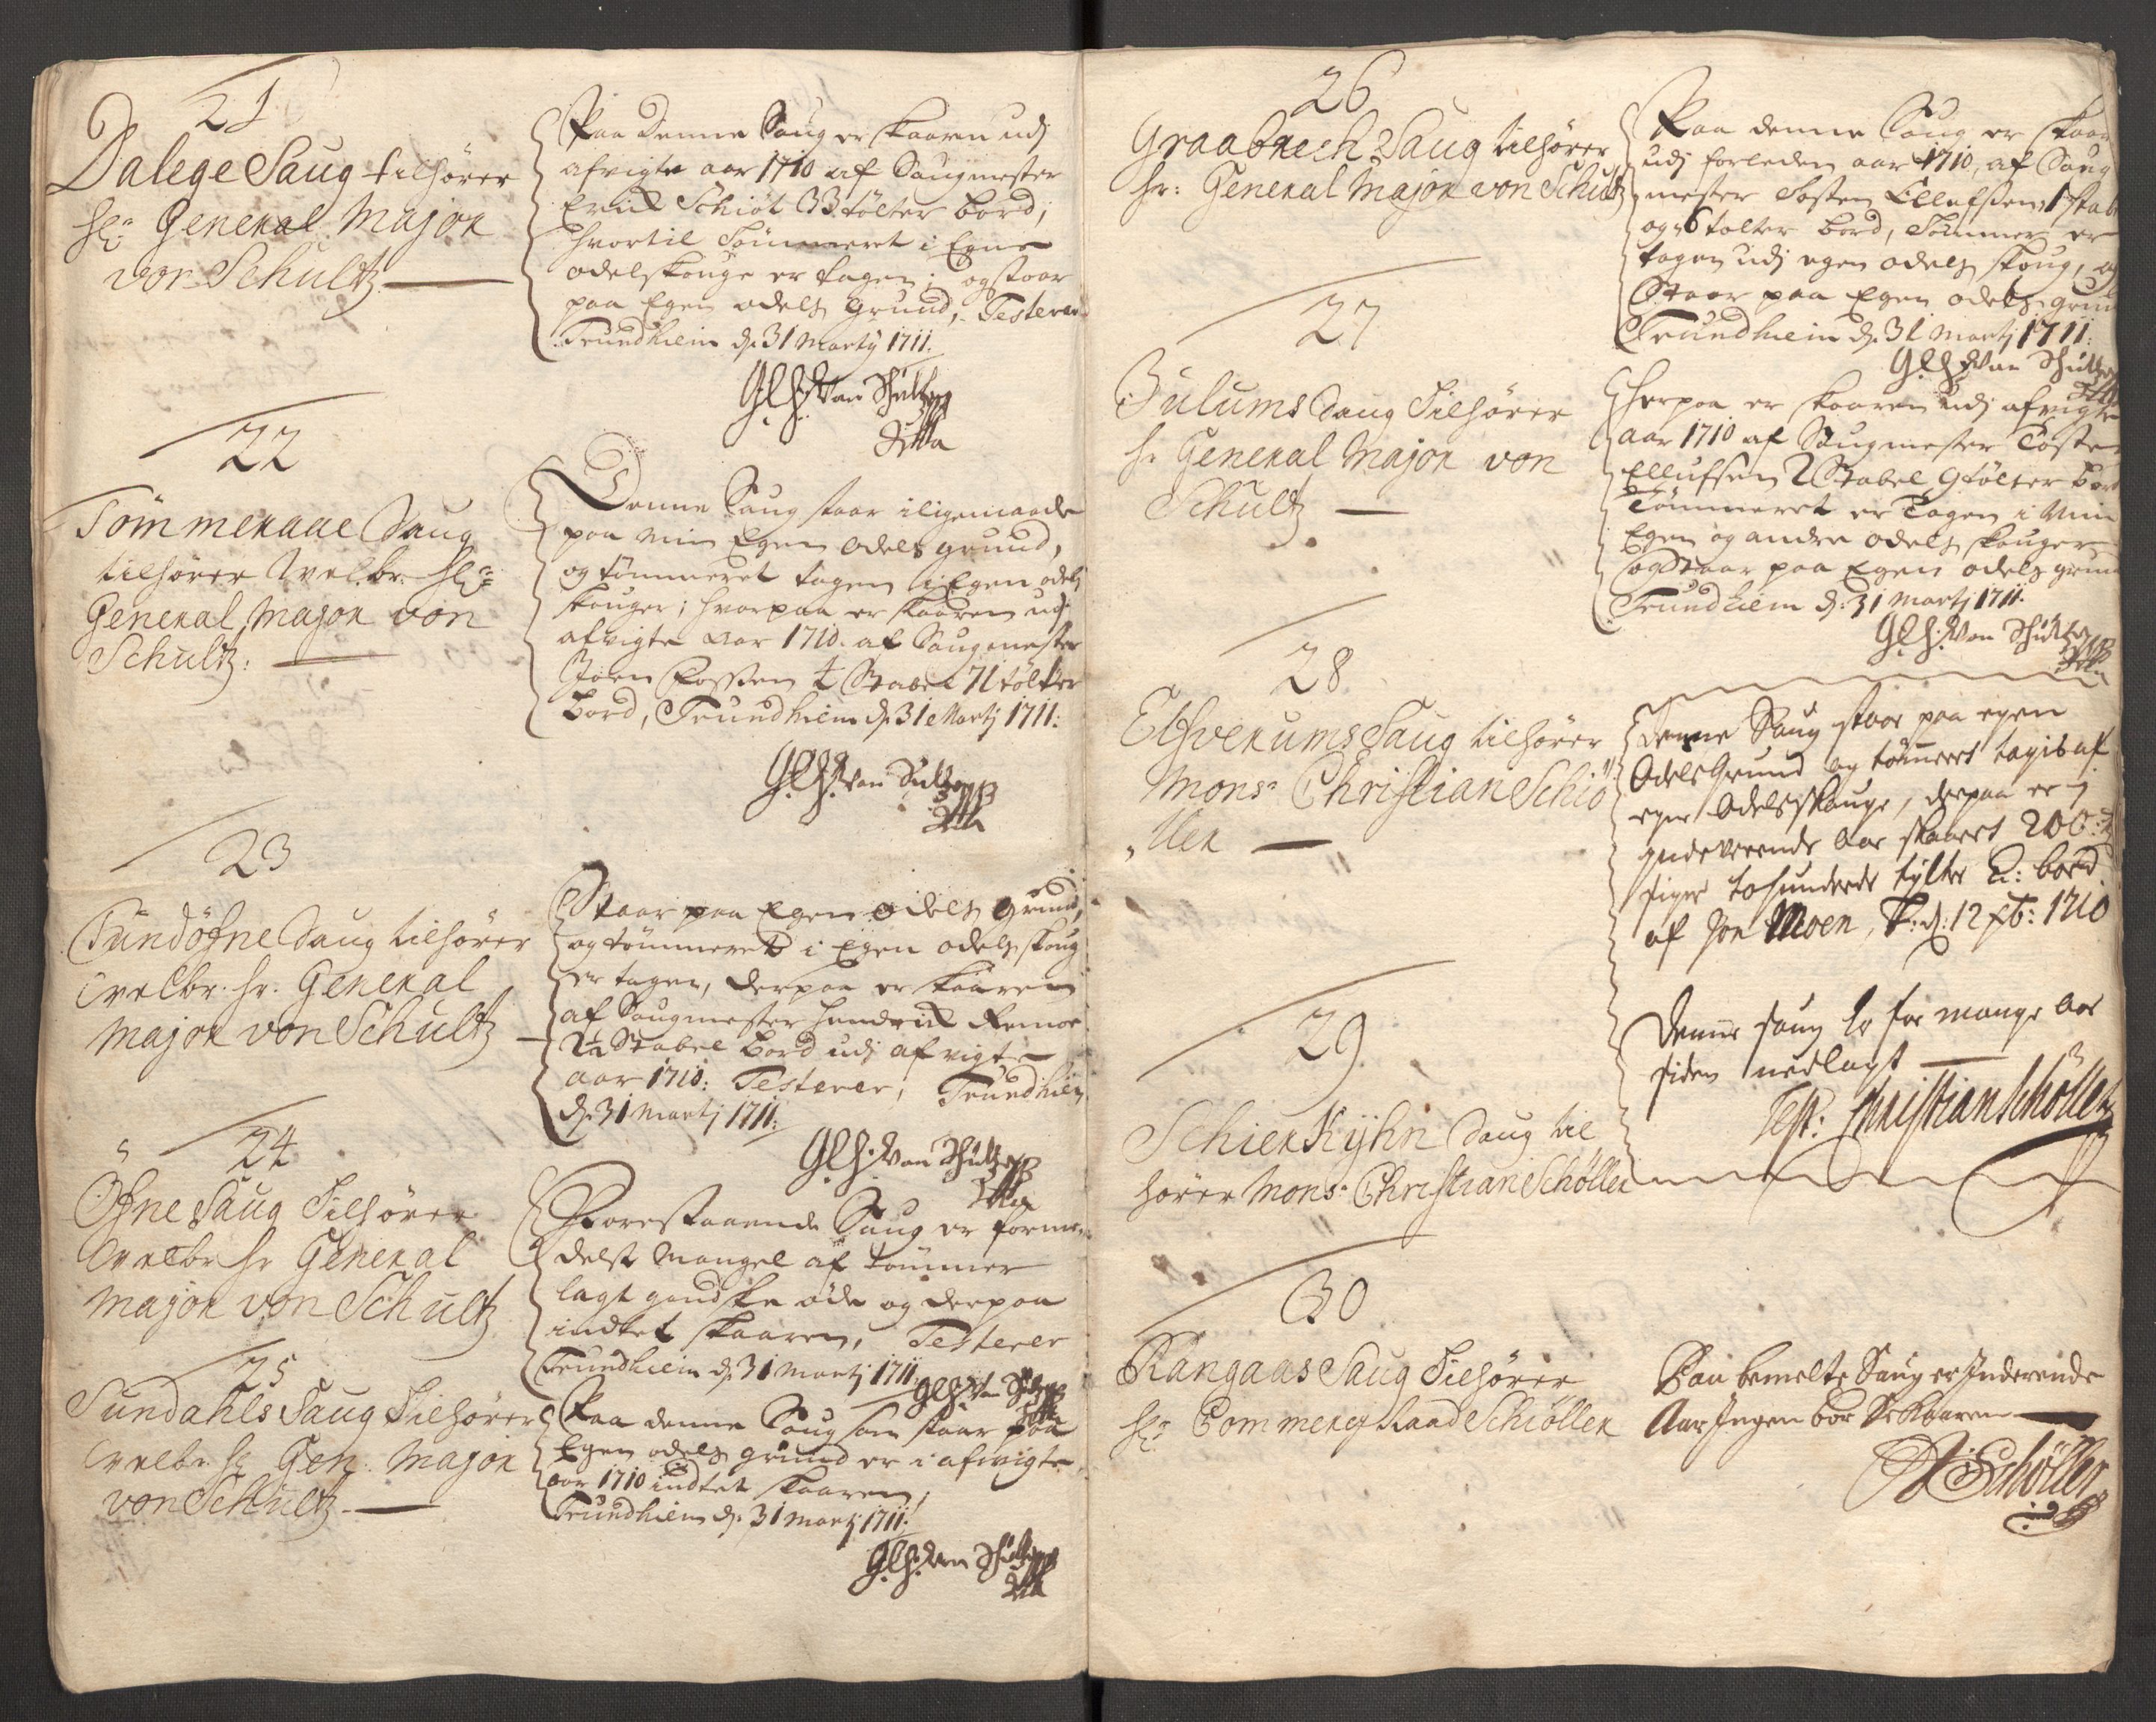 21
Dalege Saug tilhører
Hr: General Major
von Schultz
Paa denne Saug er skaaren udj
afvigte aar 1710 af Saugmester
Erick Schiöt 33 tölter bord,
hvortil Tömmeret i Egne
odelskouge er tagen; og staar
paa Egen odels Grund, Testerer
Trundhiem d. 31 Martij 1711.
G.l.H. von Schultz
22
Tömmeraae Saug
tilhører Velbr. Hr:
General Major von
Schultz:
Denne Saug staar iligemaade
paa min Egen odels grund,
og tömmeret tagen i Egen odels
skouger; hvorpaa er skaaren udj
afvigte aar 1710. af Saugmester
Jöen 1 Stabel 71 tölter
bord, Trundhiem d. 31 Martj 1711:
G.l.H. von Schultz
23
Tundöfne Saug tilhører
Velbr. Hr. General
Major von Schultz
Staar paa Egen odels grund,
og tömmeret i Egen odels skoug
er tagen, derpaa er skaaren
af Saugmester Hendrick
2½ Stabel bord udj afvigte
aar 1710: Testerer, Trundhiem
d. 31 Martj 1711:
G.l.H. von Schultz
24
Öfne Saug Tilhører
Velbr Hr General
Major von Schultz
Forestaaende Saug er forme
delst Mangel af tömmer
lagt gandske øde og derpaa
indtet skaaren, Testerer
Trundhiem d. 31 Martj 1711
G.l.H. von Schultz
25
Sundahls Saug Tilhører
Velbr Hr Gen: Major
von Schultz
Paa denne Saug som staar paa
Egen odels grund er i afvigte
aar 1710 indtet skaaren,
Trundhiem d. 31 Martj 1711:
G.l.H. von Schultz
26
Graabrech Saug tilhører
Hr: General Major von Schultz
Paa denne Saug er skaar
udj forleden aar 1710, af Saug
mester Tosten Ellefssen, 1 stab
og 6 tolter bord, Tömmer er
tagen udj egen odels skoug, og
Staar paa Egen odels grun
Trundhiem d. 31 Martj 1711:
G.l.H. von Schultz
27
Bulums Saug Tilhører
Hr General Major von
Schultz
Herpaa er skaaren udj afvigte
aar 1710 af Saugmester Toste
Ellufsen 2 Stabel 9 tölter bor
Tömmeret er Tagen i Min
Egen og andre odels skouger
og Staar paa Egen odels grun
Trundhiem d: 31 Martj 1711.
G.l.H. von Schultz
28
Elfverums Saug tilhører
Mons: Christian Schiö
ller
Denne Saug staar paa egen
Odels Grund og tömmert tagis af
egen Odels skouge, derpaa er j
indeverende Aar skaaret 200:
siger tohunderde tylter bord
af Jon Moen, T: d: 12 1710
29
Schierkyhn Saug til
hører Mons: Christian Schøller
Denne saug er for mange Aar
siden nedlagt
Test: Christian Schøller
30
Rangaas Saug Tilhører
Hr: Commerce Raad Schiøller
Paa bemelte Saug er Inderende
Aar Ingen bor Skaaren
Schöller